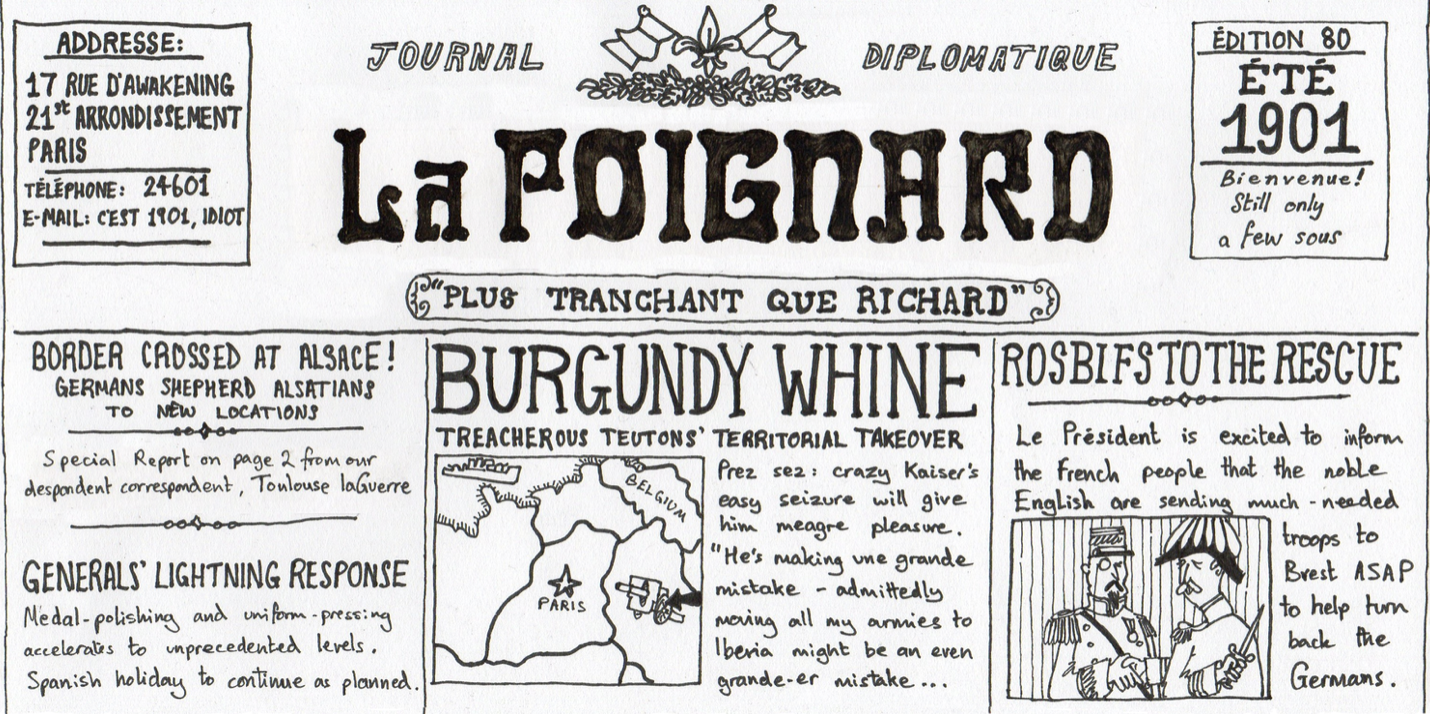 ADDRESSE:
17 RUE D'AWAKENING
21st ARRONDISSEMENT
PARIS
TÉLÉPHONE: 24601
E-MAIL: C'EST 1901, IDIOT
JOURNAL DIPLOMATIQUE
La POIGNARD
"PLUS TRANCHANT QUE RICHARD"
ÉDITION 80
ÉTÉ
1901
Bienvenue!
Still only
a few sous
BORDER CROSSED AT ALSACE!
GERMANS SHEPHERD ALSATIANS
TO NEW LOCATIONS
Special Report on page 2 from our
despondent correspondent, Toulouse laGuerre
GENERALS' LIGHTNING RESPONSE
Medal-polishing and uniform-pressing
accelerates to unprecedented levels.
Spanish holiday to continue as planned.
BURGUNDY WHINE
TREACHEROUS TEUTONS' TERRITORIAL TAKEOVER
BELGIUM
PARIS
Prez sez: crazy Kaiser's
easy seizure will give
him meagre pleasure.
"He's making une grande
mistake - admittedly
moving all my armies to
Iberia might be an even
grande-er mistake...
ROSBIFS TO THE RESCUE
Le Président is excited to inform
the French people that the noble
English are sending much-needed
troops to
Brest ASAP
to help turn
back the
Germans.